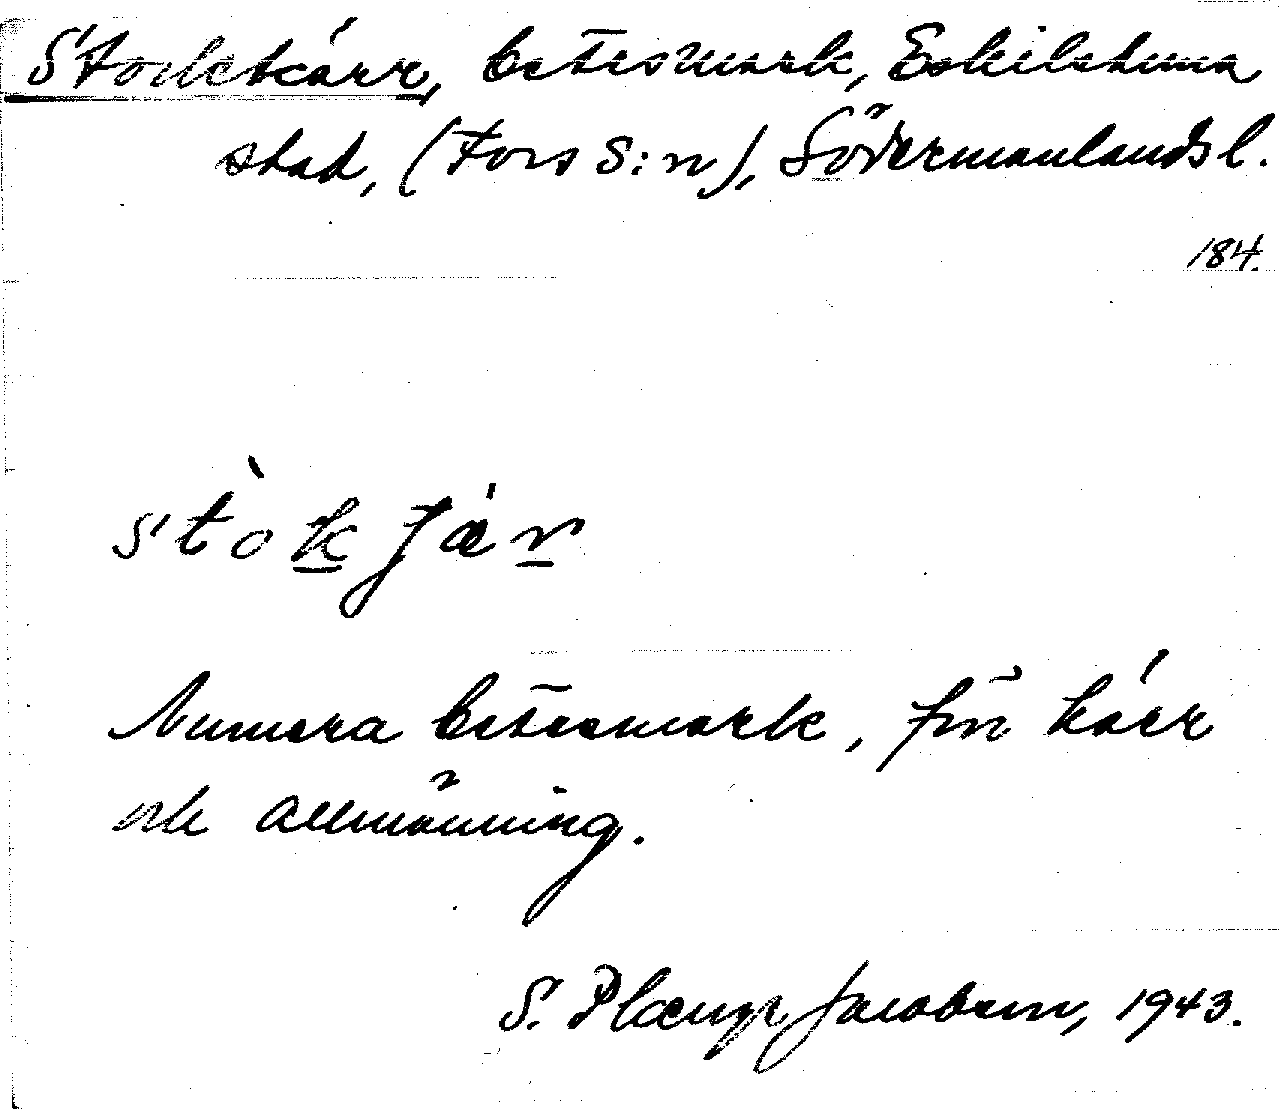 Stockkärr, betesmark, Eskilstuna
stad, (Fors S:n), Södermanlands l.
184.
stòkjär
Numera betesmark, förr kärr
och allmänning.
S. Plænge Jacobson, 1943.